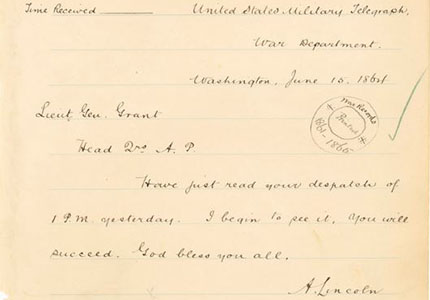 Time Received
United States Military Telegraph,
War Department.
Washington, June 15, 1864
Lieut. Gen. Grant
Head Qrs A. P.
War Records
Printed
1861-1865
Have just read your despatch of
1 P.M. yesterday. I begin to see it. You will
succeed. God bless you all.
A. Lincoln